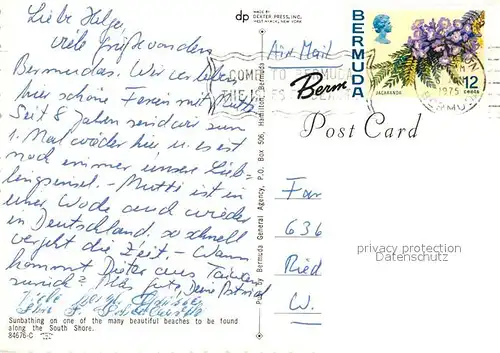 dp MADE BY
DEXTER PRESS, INC.
WEST NYACK, NEW YORK
Liebe Helga
viele Grüße von den
Bermudas. Wir verleben
hier schöne Ferien mit Mutti
Seit 8 Jahren sind wir zum
1. Mal wieder hier u. es ist
noch immer unsere Lieb-
lingsinsel. - Mutti ist in
einer Woche auch wieder
in Deutschland. so schnell
vergeht die Zeit. - Wann
kommt Dieter aus Taiwan
zurück? Alles gute, Deine
Viele
Sunbathing on one of the many beautiful beaches to be found
along the South Shore.
84676-C
Pub. by Bermuda General Agency, P.O. Box 506, Hamilton, Bermuda
Air Mail
COME TO BERMUDA
THE ISLES
Berm
BERMUDA
JACARANDA
12
CENTS
1975
BERMUDA
Post Card
636
Ried
W.
privacy protection
DSGVO